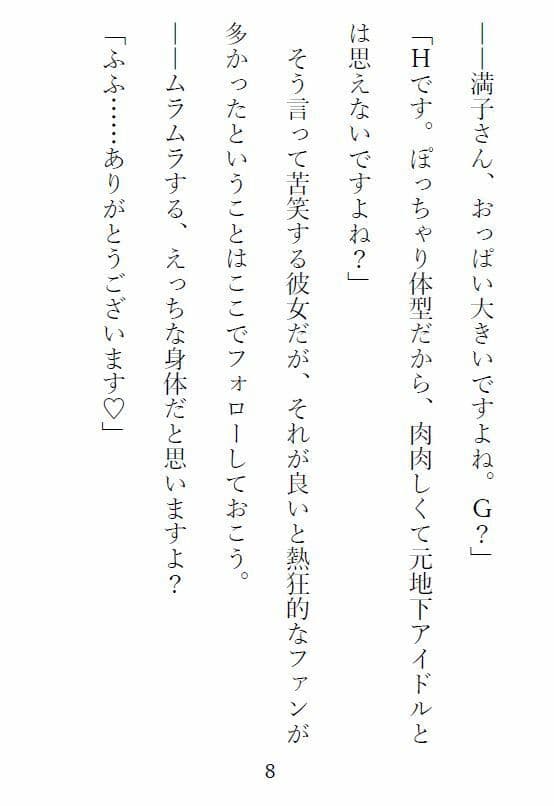 ――満子さん、おっぱい大きいですよね。G？」
「Hです。ぽっちゃり体型だから、肉肉しくて元地下アイドルと
は思えないですよね？」
　そう言って苦笑する彼女だが、それが良いと熱狂的なファンが
多かったということはここでフォローしておこう。
――ムラムラする、えっちな身体だと思いますよ？
「ふふ……ありがとうございます♡」
8